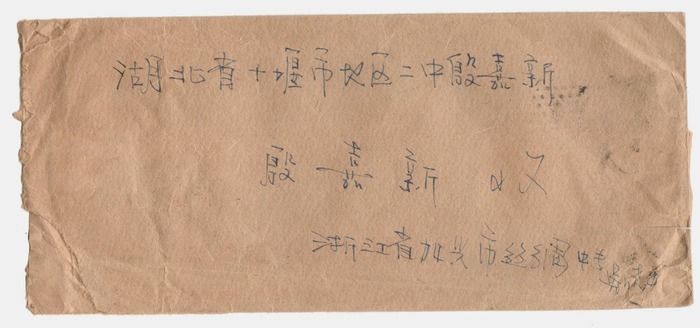 湖北省十堰市地区二中殷嘉新
殷嘉新 收
浙江省加兴市丝绸中专